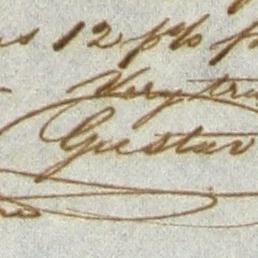 12 p%
Very tru
Gustav